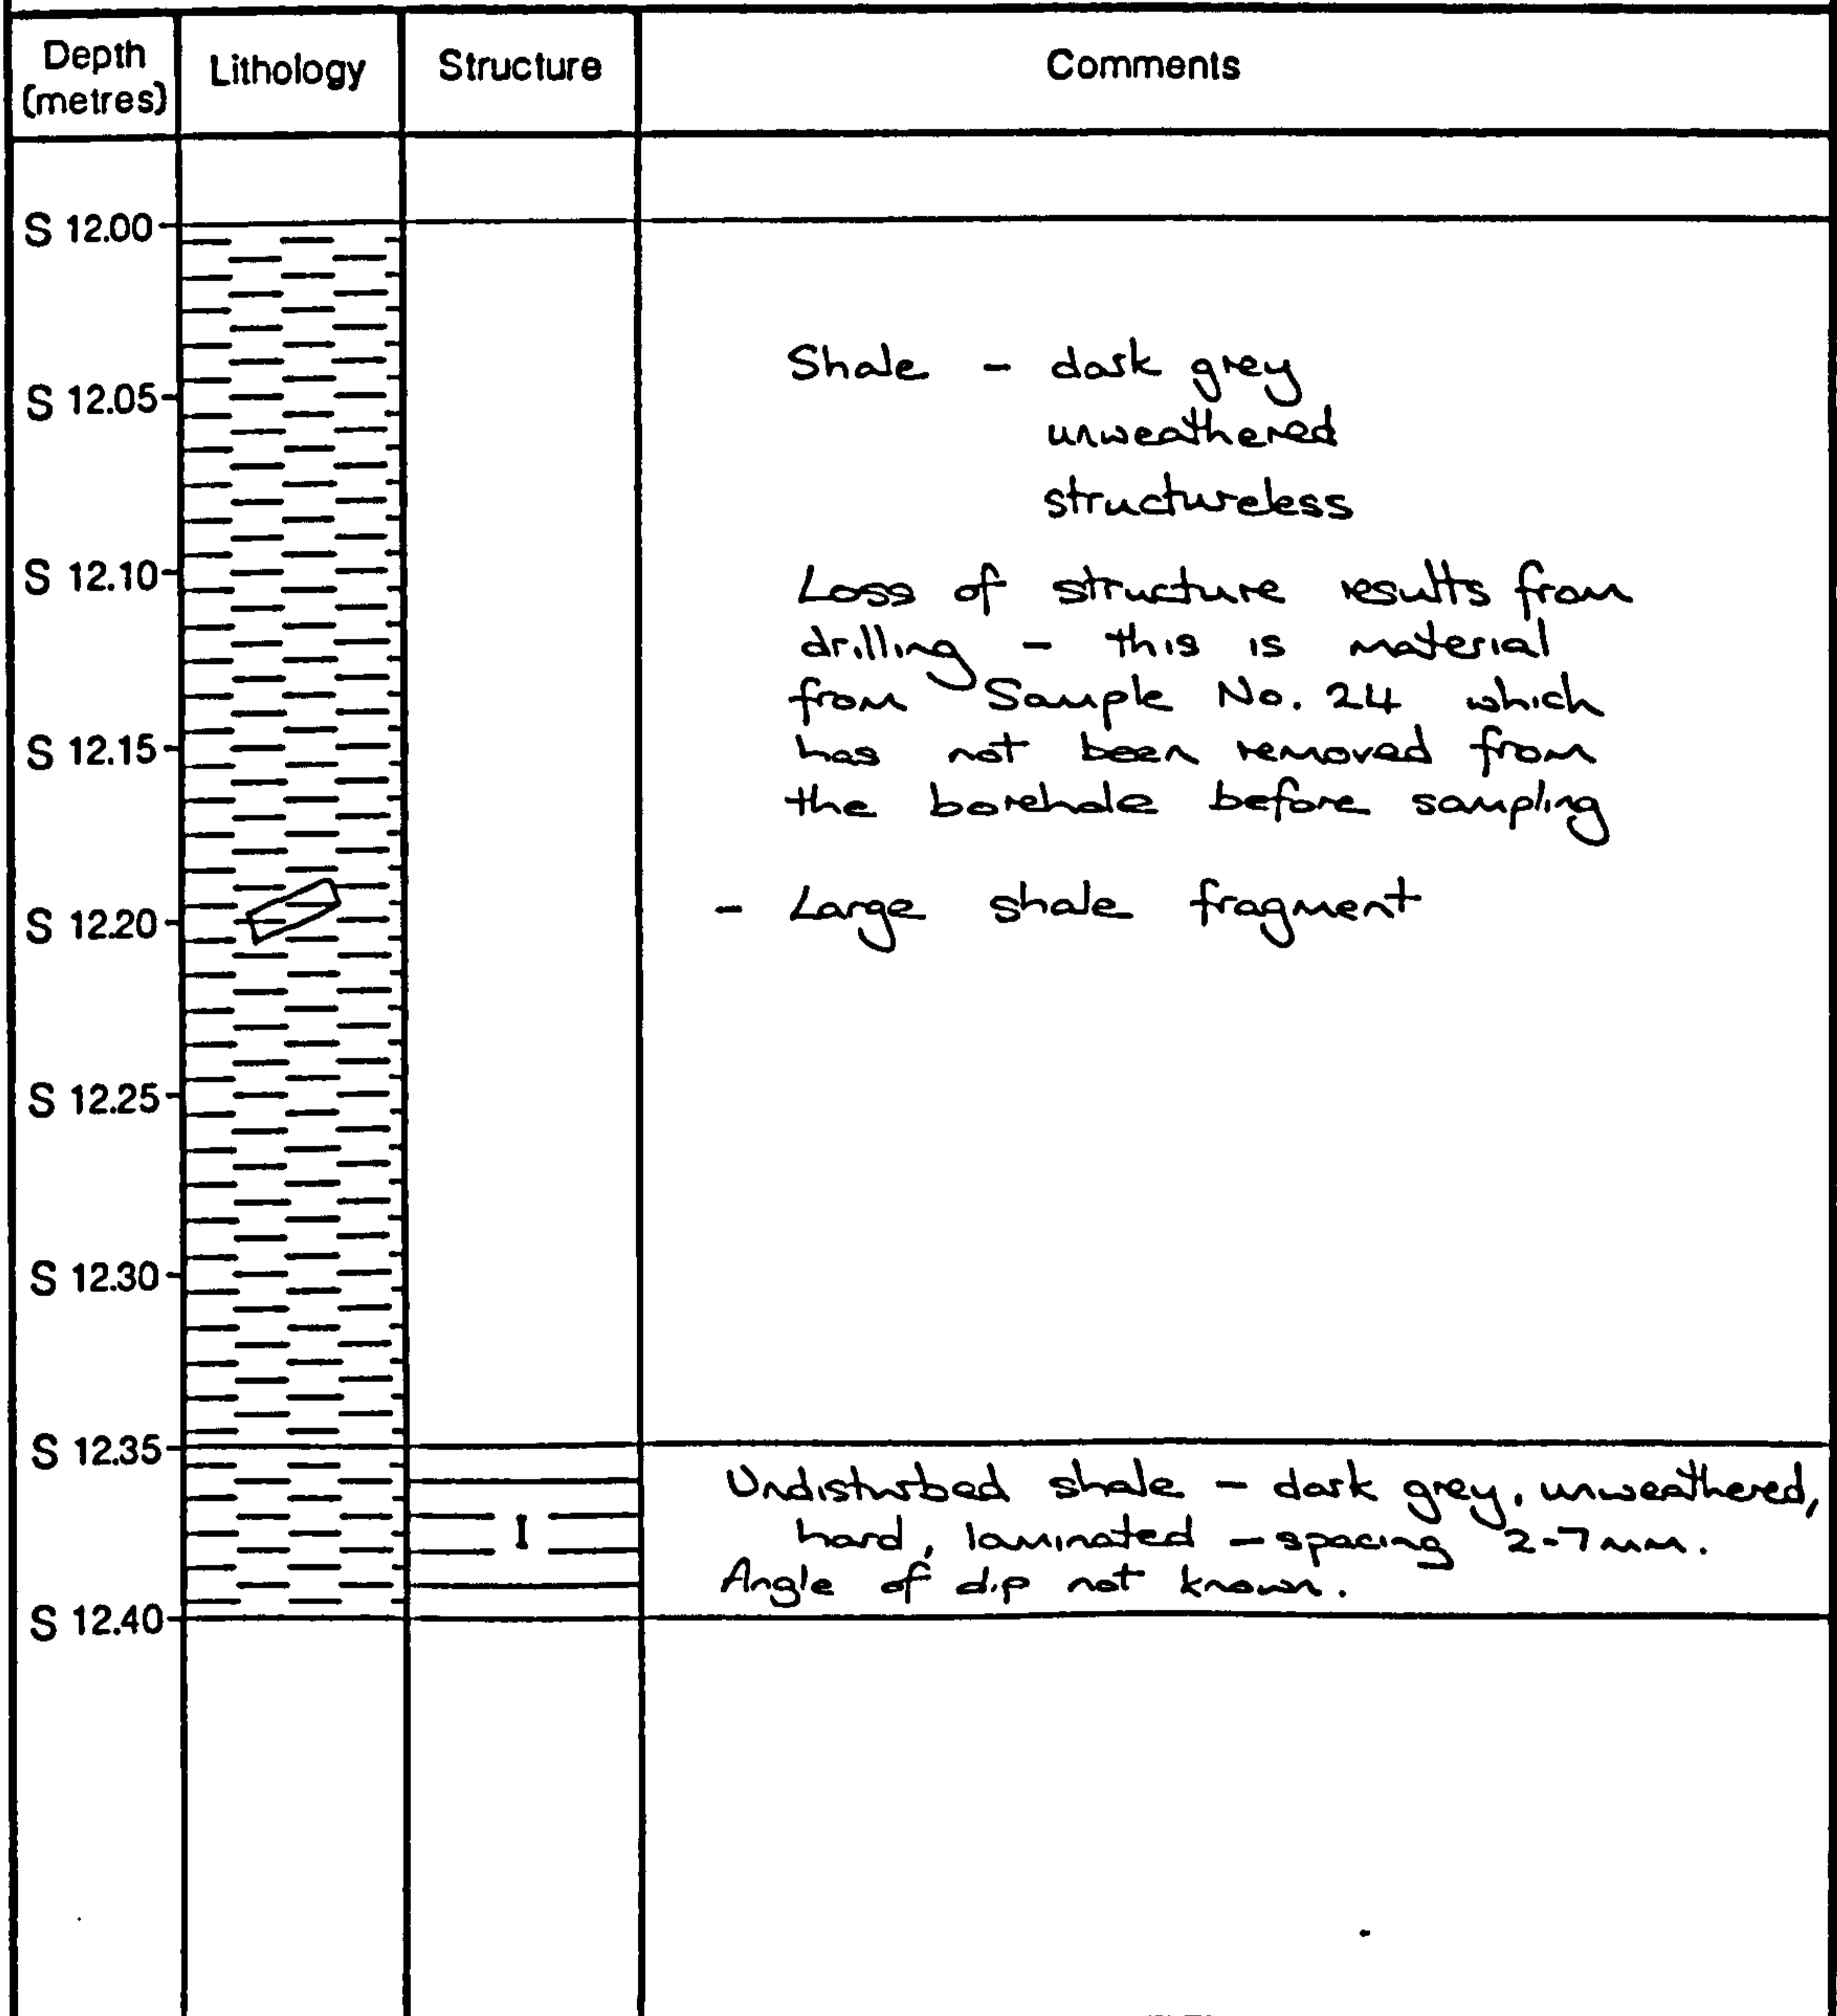 Depth
(metres)
Lithology
Structure
Comments
S 12.00
S 12.05
S 12.10
S 12.15
S 12.20
S 12.25
S 12.30
S 12.35
S 12.40
Shale - dark grey
unweathered
structureless
Loss of structure results from
drilling - this is material
from Sample No. 24 which
has not been removed from
the borehole before sampling
- Large shale fragment
I
Undisturbed shale - dark grey, unweathered,
hard, laminated - spacing 2-7mm.
Angle of dip not known.